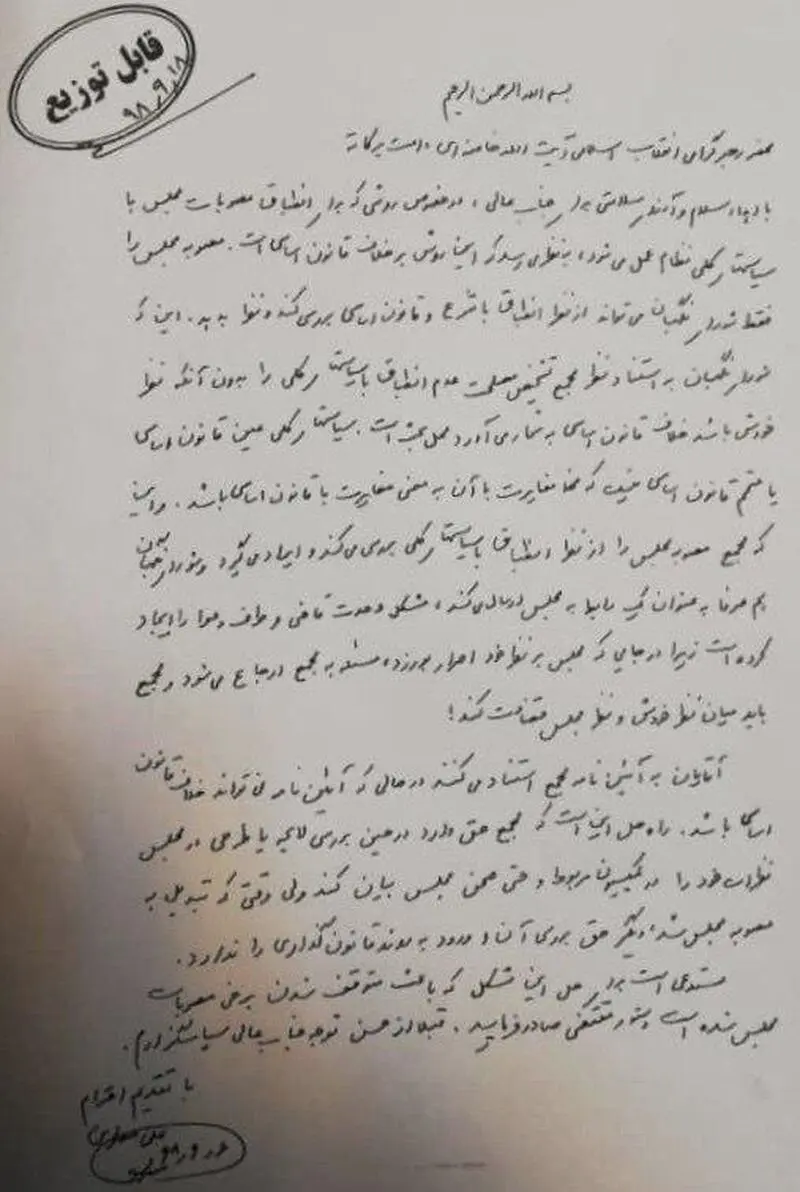 قابل توزیع
۹۸٫۹٫۱۸
بسم الله الرحمن الرحیم
محضر رهبر گرامی انقلاب اسلامی آیت الله خامنه‌ای دامت برکاته
با اهداء سلام و آرزوی سلامتی برای جناب عالی، در خصوص روشی که برای انطباق مصوبات مجلس با
سیاستهای کلی نظام عمل می‌شود، به نظر می‌رسد که این روش بر خلاف قانون اساسی است. مصوبه مجلس را
فقط شورای نگهبان می‌تواند از نظر انطباق با شرع و قانون اساسی بررسی کند و نظر بدهد. این که
شورای نگهبان به استناد نظر مجمع تشخیص مصلحت عدم انطباق با سیاستهای کلی را بدون آنکه نظر
خودش باشد خلاف قانون اساسی به شمار می‌آورد محل بحث است. سیاستهای کلی عین قانون اساسی
یا متمم قانون اساسی نیست که مغایرت با آن به معنی مغایرت با قانون اساسی باشد. و این
که مجمع مصوبه مجلس را از نظر انطباق با سیاستهای کلی بررسی می‌کند و ایراد می‌گیرد و شورای نگهبان
هم صرفا به عنوان یک رابط به مجلس ارسال می‌کند، مشکل وحدت قاضی و طرف دعوا را ایجاد
کرده است زیرا در جایی که مجلس بر نظر خود اصرار بورزد، مسئله به مجمع ارجاع می‌شود و مجمع
باید میان نظر خودش و نظر مجلس قضاوت کند!
آقایان به آئین نامه مجمع استناد می‌کنند در حالی که آئین نامه نمی‌تواند خلاف قانون
اساسی باشد. راه حل این است که مجمع حق دارد در حین بررسی لایحه یا طرحی در مجلس
نظرات خود را در کمیسیون مربوطه و حتی صحن مجلس بیان کند ولی وقتی که تبدیل به
مصوبه مجلس شد، دیگر حق بررسی آن و ورود به روند قانون گذاری را ندارد.
مستدعی است برای حل این مشکل که باعث متوقف شدن برخی مصوبات
مجلس شده است دستور مقتضی صادر فرمایید. قبلا از حسن توجه جناب عالی سپاسگزارم.
با تقدیم احترام
علی مطهری